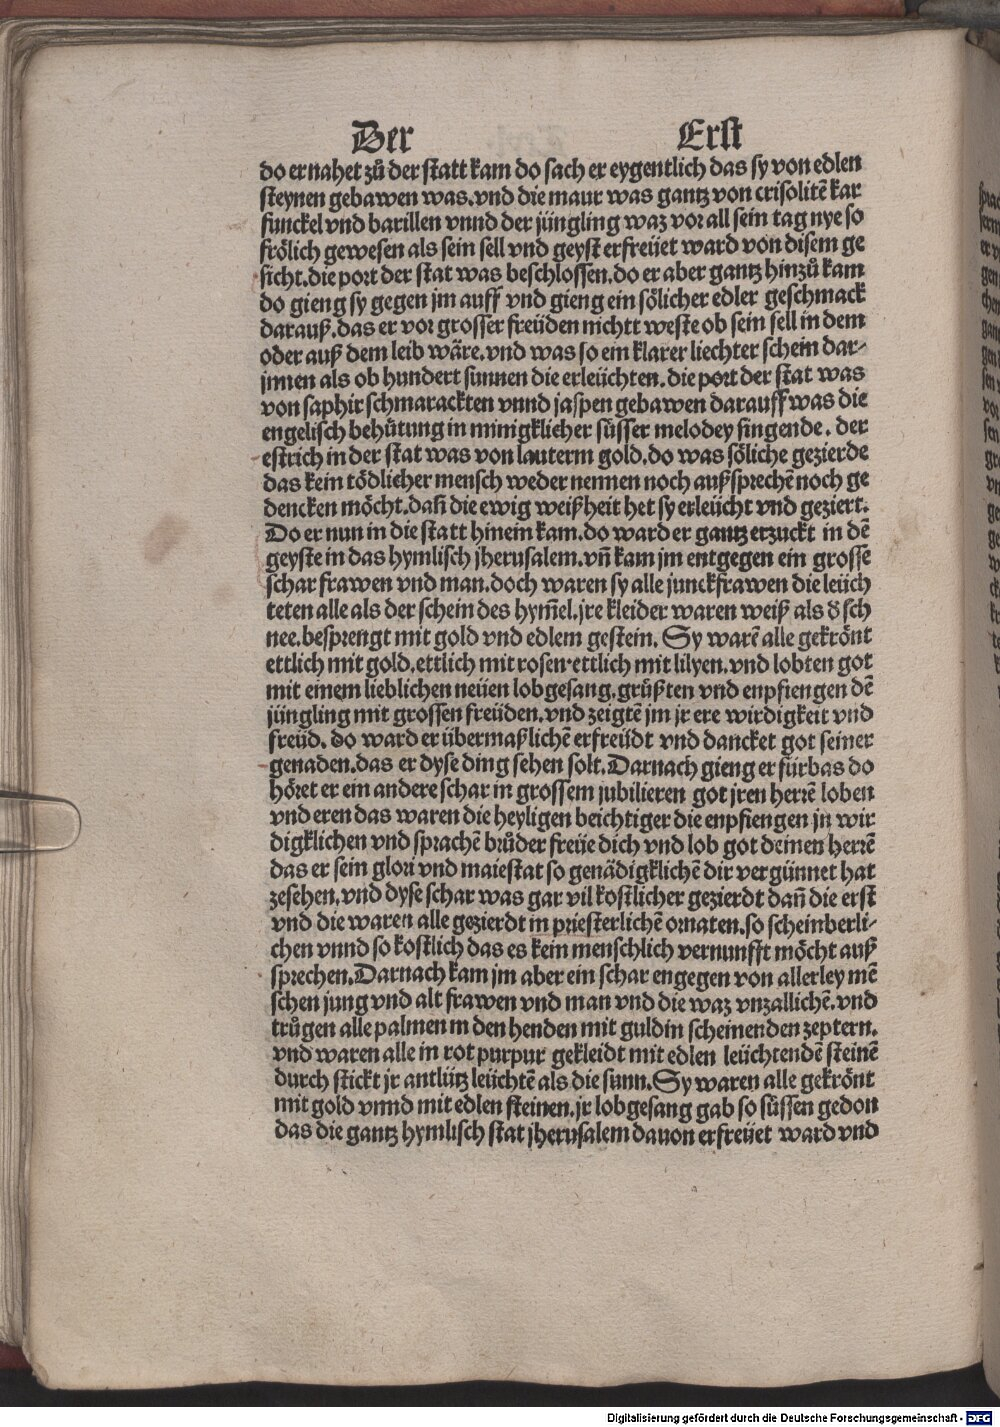 Der Erst
do er nahet zů der statt kam do sach er eygentlich das sy von edlen
steynen gebawen was. vnd die maur was gantz von crisolitē kar
funckel vnd barillen vnnd der jüngling waz vor all sein tag nye so
frölich gewesen als sein sell vnd geyst erfreüet ward von disem ge
sicht. die port der stat was beschlossen. do er aber gantz hinzů kam
do gieng sy gegen jm auff vnd gieng ein sölicher edler geschmack
darauß. das er vor grosser freüden nichtt weste ob sein sell in dem
oder auß dem leib wäre. vnd was so ein klarer liechter schein dar-
jnnen als ob hundert sunnen die erleüchten. die port der stat was
von saphir schmarackten vnnd jaspen gebawen darauff was die
engelisch behütung in minigklicher süsser melodey singende. der
estrich in der stat was von lauterm gold. do was söliche gezierde
das kein tödlicher mensch weder nennen noch außsprechē noch ge
dencken möcht. dañ die ewig weißheit het sy erleücht vnd geziert.
Do er nun in die statt hinein kam. do ward er gantz erzuckt in dē
geyste in das hymlisch jherusalem. vñ kam jm entgegen ein grosse
schar frawen vnd man. doch waren sy alle junckfrawen die leüch
teten alle als der schein des hym̄el. jre kleider waren weiß als d̄ sch
nee. besprengt mit gold vnd edlem gestein. Sy warē alle gekrönt
ettlich mit gold. ettlich mit rosen. ettlich mit lilyen. vnd lobten got
mit einem lieblichen neüen lobgesang. grüßten vnd enpfiengen dē
jüngling mit grossen freüden. vnd zeigtē jm jr ere wirdigkeit vnd
freüd. do ward er übermaßlichē erfreüdt vnd dancket got seiner
genaden. das er dyse ding sehen solt. Darnach gieng er fürbas do
höret er ein andere schar in grossem jubilieren got jren herrē loben
vnd eren das waren die heyligen beichtiger die enpfiengen jn wir
digklichen vnd sprachē brůder freüe dich vnd lob got deinen herrē
das er sein glori vnd maiestat so genädigklichē dir vergünnet hat
zesehen. vnd dyse schar was gar vil kostlicher gezierdt dañ die erst
vnd die waren alle gezierdt in priesterlichē ornaten. so scheinberli-
chen vnnd so kostlich das es kein menschlich vernunfft möcht auß
sprechen. Darnach kam jm aber ein schar engegen von allerley mē
schen jung vnd alt frawen vnd man vnd die waz vnzallichē. vnd
trůgen alle palmen in den henden mit guldin scheinenden zeptern.
vnd waren alle in rot purpur gekleidt mit edlen leüchtendē steinē
durch stickt jr antlütz leüchtē als die sunn. Sy waren alle gekrönt
mit gold vnnd mit edlen steinen. jr lobgesang gab so süssen gedon
das die gantz hymlisch stat jherusalem dauon erfreüet ward vnd
Digitalisierung gefördert durch die Deutsche Forschungsgemeinschaft - DFG